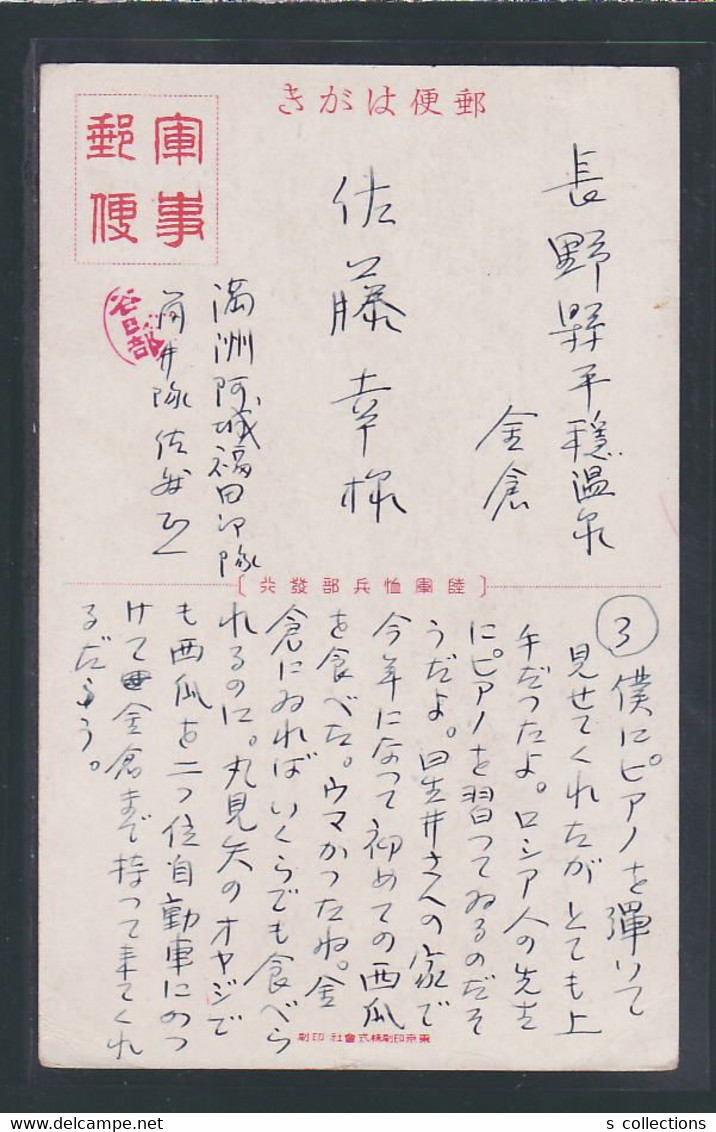 郵便はがき
軍事
郵便
長野縣平穏温泉
金倉
佐藤幸様
満洲阿城福田部隊
筒井隊佐藤正一
陸軍恤兵部發行
③僕にピアノを彈いて
見せてくれたがとても上
手だつたよ。ロシア人の先生
にピアノを習つてゐるのだそ
うだよ。臼井さんの家で
今年になつて初めての西瓜
を食べた。ウマかつたね。金
倉にゐればいくらでも食べら
れるのに。丸見矢のオヤジで
も西瓜を二つ位自動車にのつ
けて金倉まで持つて来てくれ
るだらう。
東京印刷株式會社・印刷
s collections